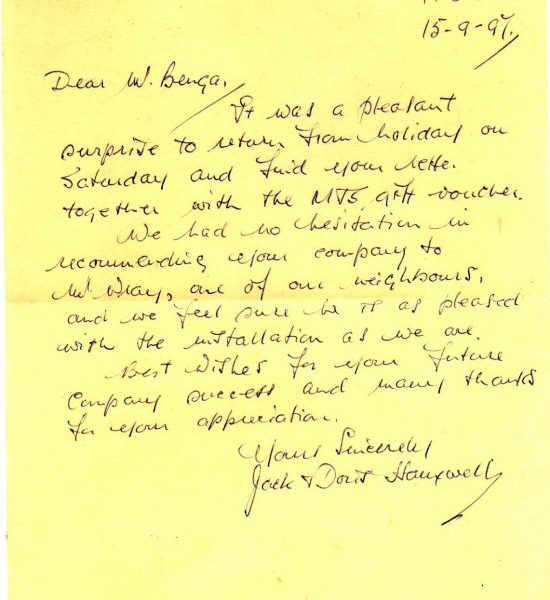 15-9-97.
Dear Mr. Benga,
It was a pleasant
surprise to return from holiday on
Saturday and find your letter
together with the M+S gift voucher.
We had no hesitation in
recommending your company to
Mr Wray, one of our neighbours,
and we feel sure he is as pleased
with the installation as we are.
Best Wishes for your future
Company success and many thanks
for your appreciation.
Yours Sincerely
Jack & Doris Hauxwell